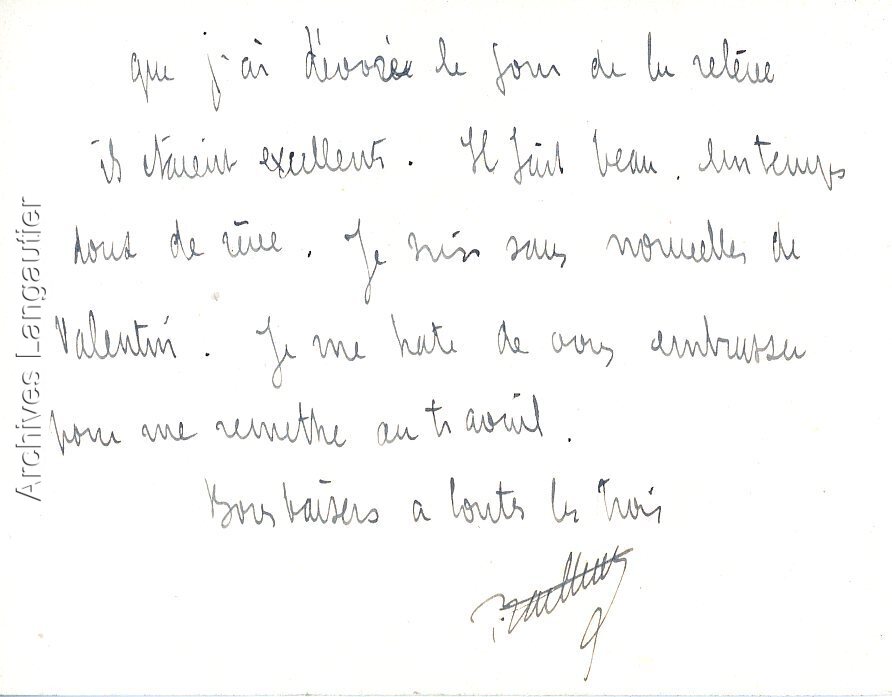 que j'ai dévorée le jour de la relève
ils étaient excellents. Il fait beau. Un temps
doux de rêve. Je suis sans nouvelles de
Valentin. Je me hate de vous embrasser
pour me remettre au travail.
Bons baisers a toutes les trois
Archives Langautier